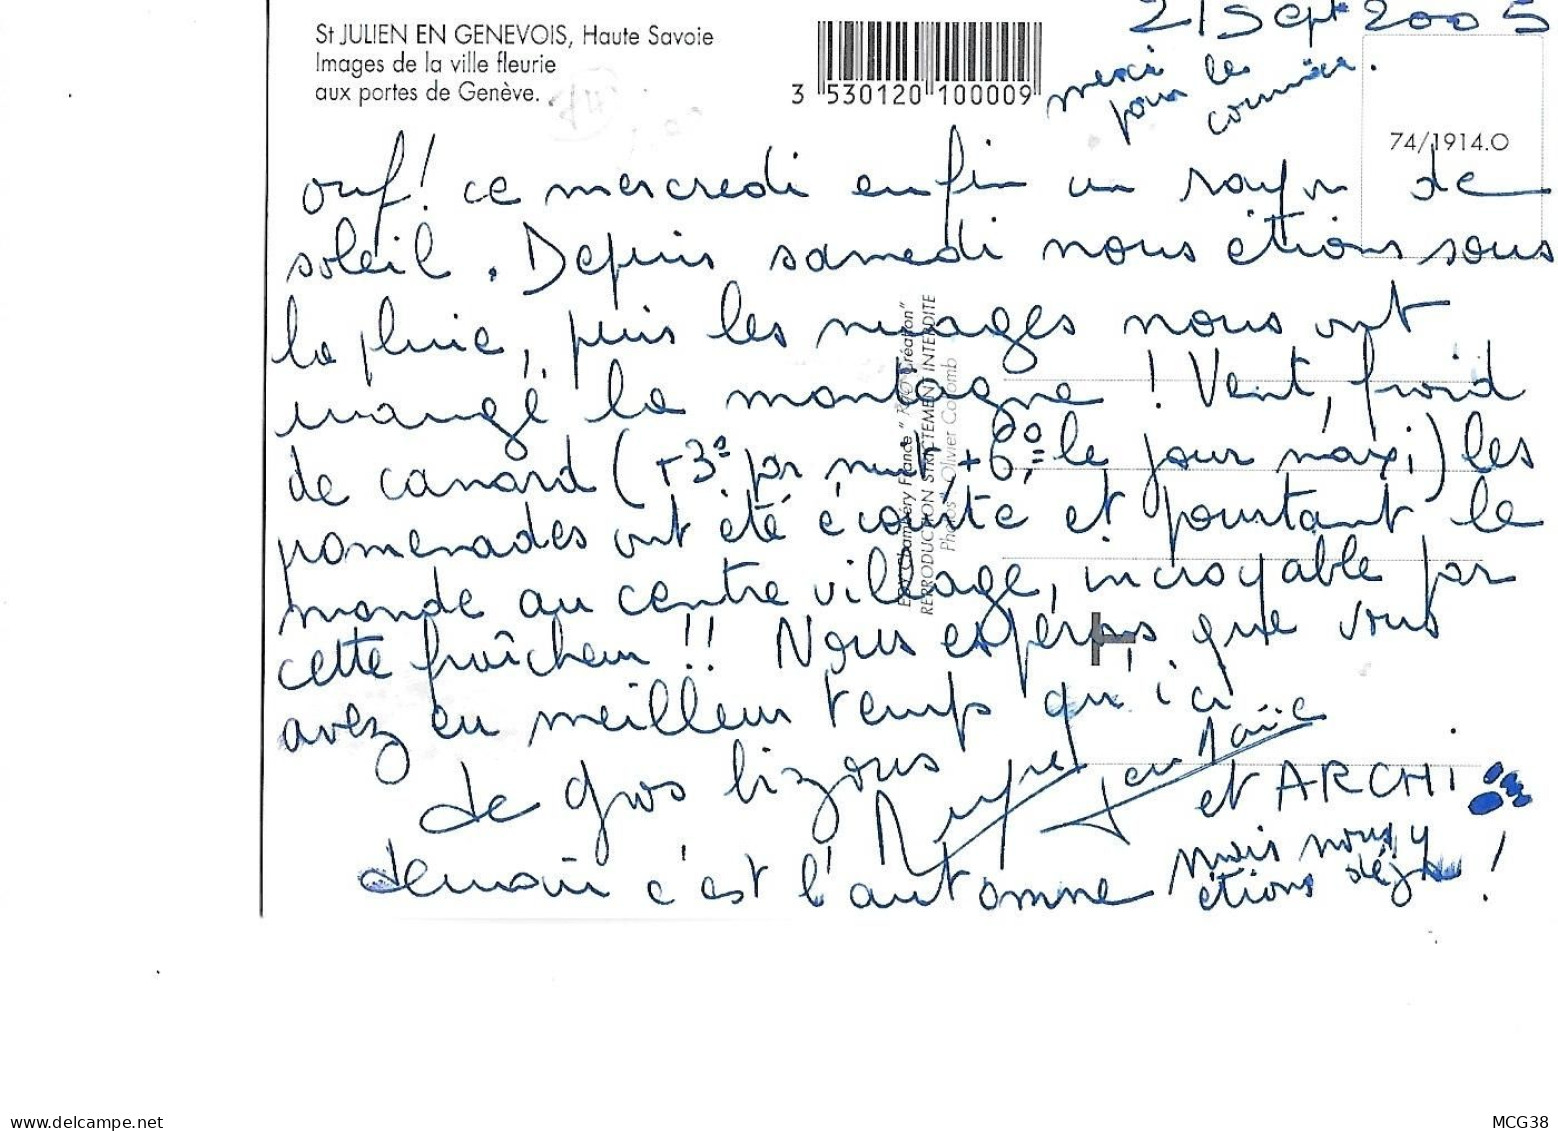 21 Sept 2005
St JULIEN EN GENEVOIS, Haute Savoie
Images de la ville fleurie
aux portes de Genève.
3 530120 100009
merci
pour le
74/1914.O
ouf! ce mercredi enfin un rayon de
soleil. Depuis samedi nous étions sous
la pluie, puis les nuages nous ont
mangé la montagne ! Vent, froid
de canard (+3° par nuit, +6° le jour maxi) les
promenades ont été écourté et pourtant le
monde au centre village, incroyable par
cette fraîcheur !! Nous espérons que vous
avez eu meilleur temps qu'ici
de gros bizous
et ARCHI
demain c'est l'automne mais nous y
étions déjà !
Edy Chambéry France
Création"
REPRODUCTION STRICTEMENT INTERDITE
Photos : Olivier Colomb
www.delcampe.net
MCG38